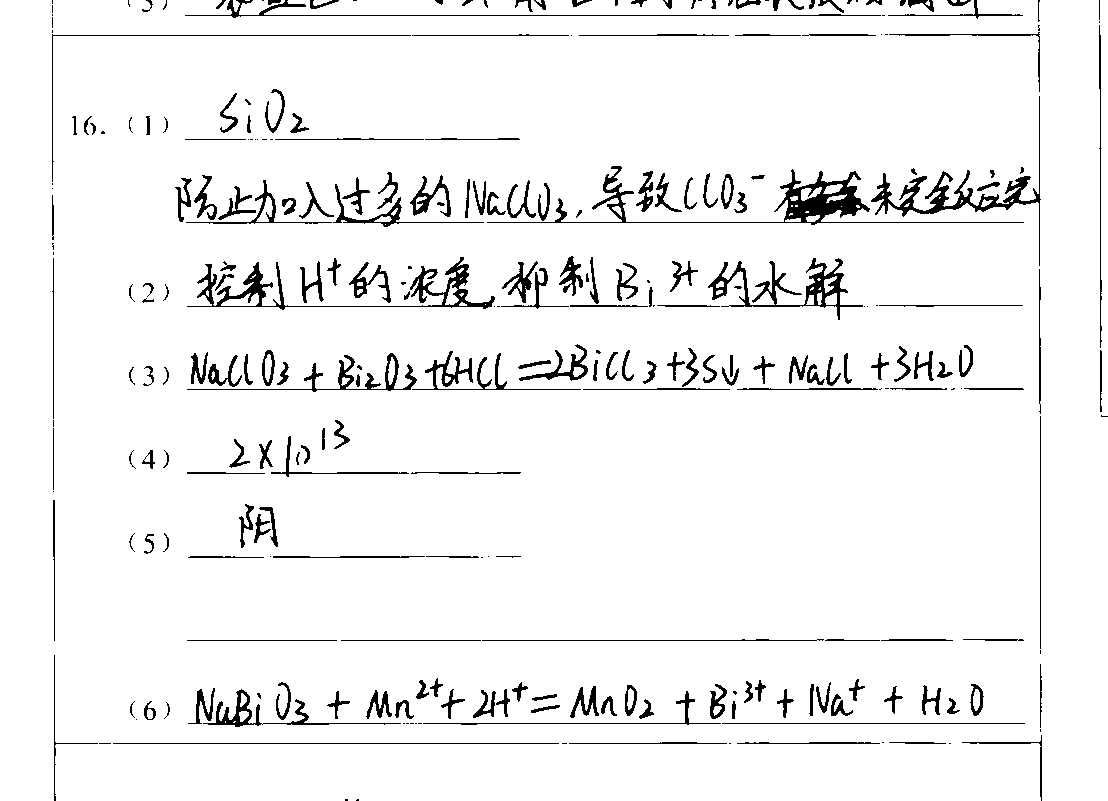 (3)
16.(1) SiO2
防止加入过多的NaClO3,导致ClO3⁻ 未完全反应完
(2) 控制H⁺的浓度,抑制Bi³⁺的水解
(3) NaClO3 + Bi2O3+6HCl =2BiCl3+3S↓ + NaCl +3H2O
(4) 2×10¹³
(5) 阴
(6) NaBiO3 + Mn²⁺+ 2H⁺ = MnO2 + Bi³⁺ + Na⁺ + H2O